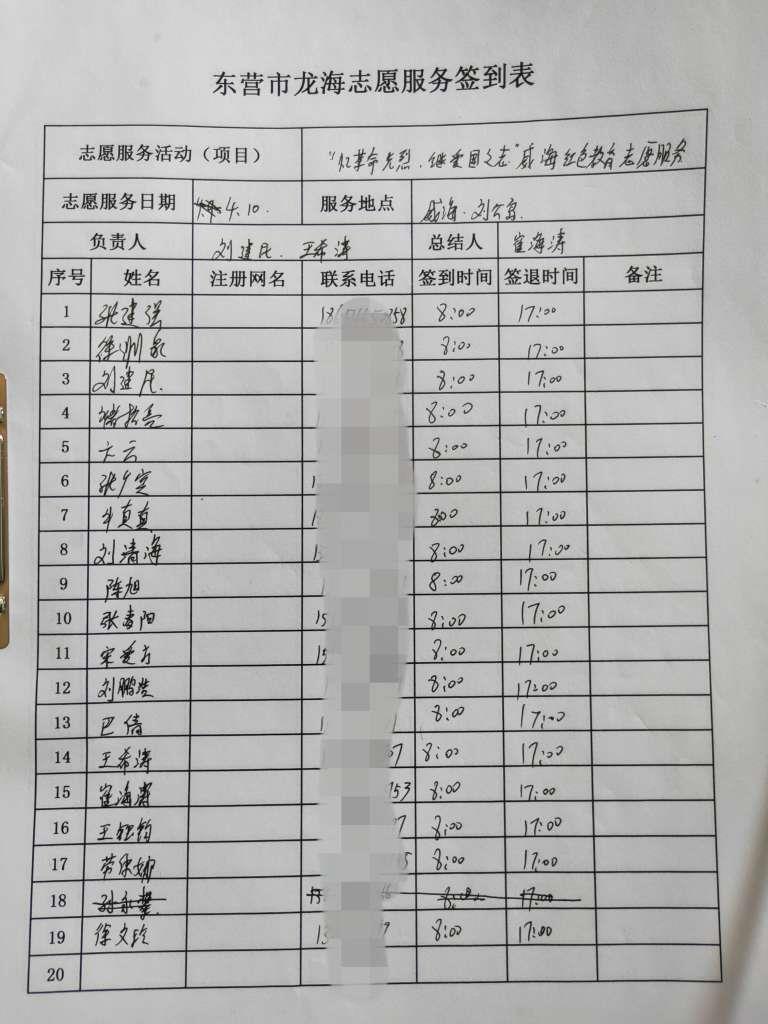 东营市龙海志愿服务签到表
志愿服务活动（项目） "忆革命先烈.继爱国之志"威海红色教育志愿服务
志愿服务日期 4.10. 服务地点 威海·刘公岛.
负责人 刘建民. 王希涛 总结人 崔海涛
序号 姓名 注册网名 联系电话 签到时间 签退时间 备注
1 张建强 8:00 17:00
2 徐 8:00 17:00
3 刘建民. 8:00 17:00
4 8:00 17:00
5 大云 8:00 17:00
6 张 8:00 17:00
7 牛真真 800 17:00
8 刘清海 8:00 17:00
9 陈旭 8:00 17:00
10 张春阳 15 8:00 17:00
11 宋爱方 15 8:00 17:00
12 刘鹏浩 8:00 17:00
13 巴倩 8:00 17:00
14 王希涛 07 8:00 17:00
15 崔海涛 153 8:00 17:00
16 王钰钧 8:00 17:00
17 8:00 17:00
18 孙永 17:00
19 徐文玲 8:00 17:00
20